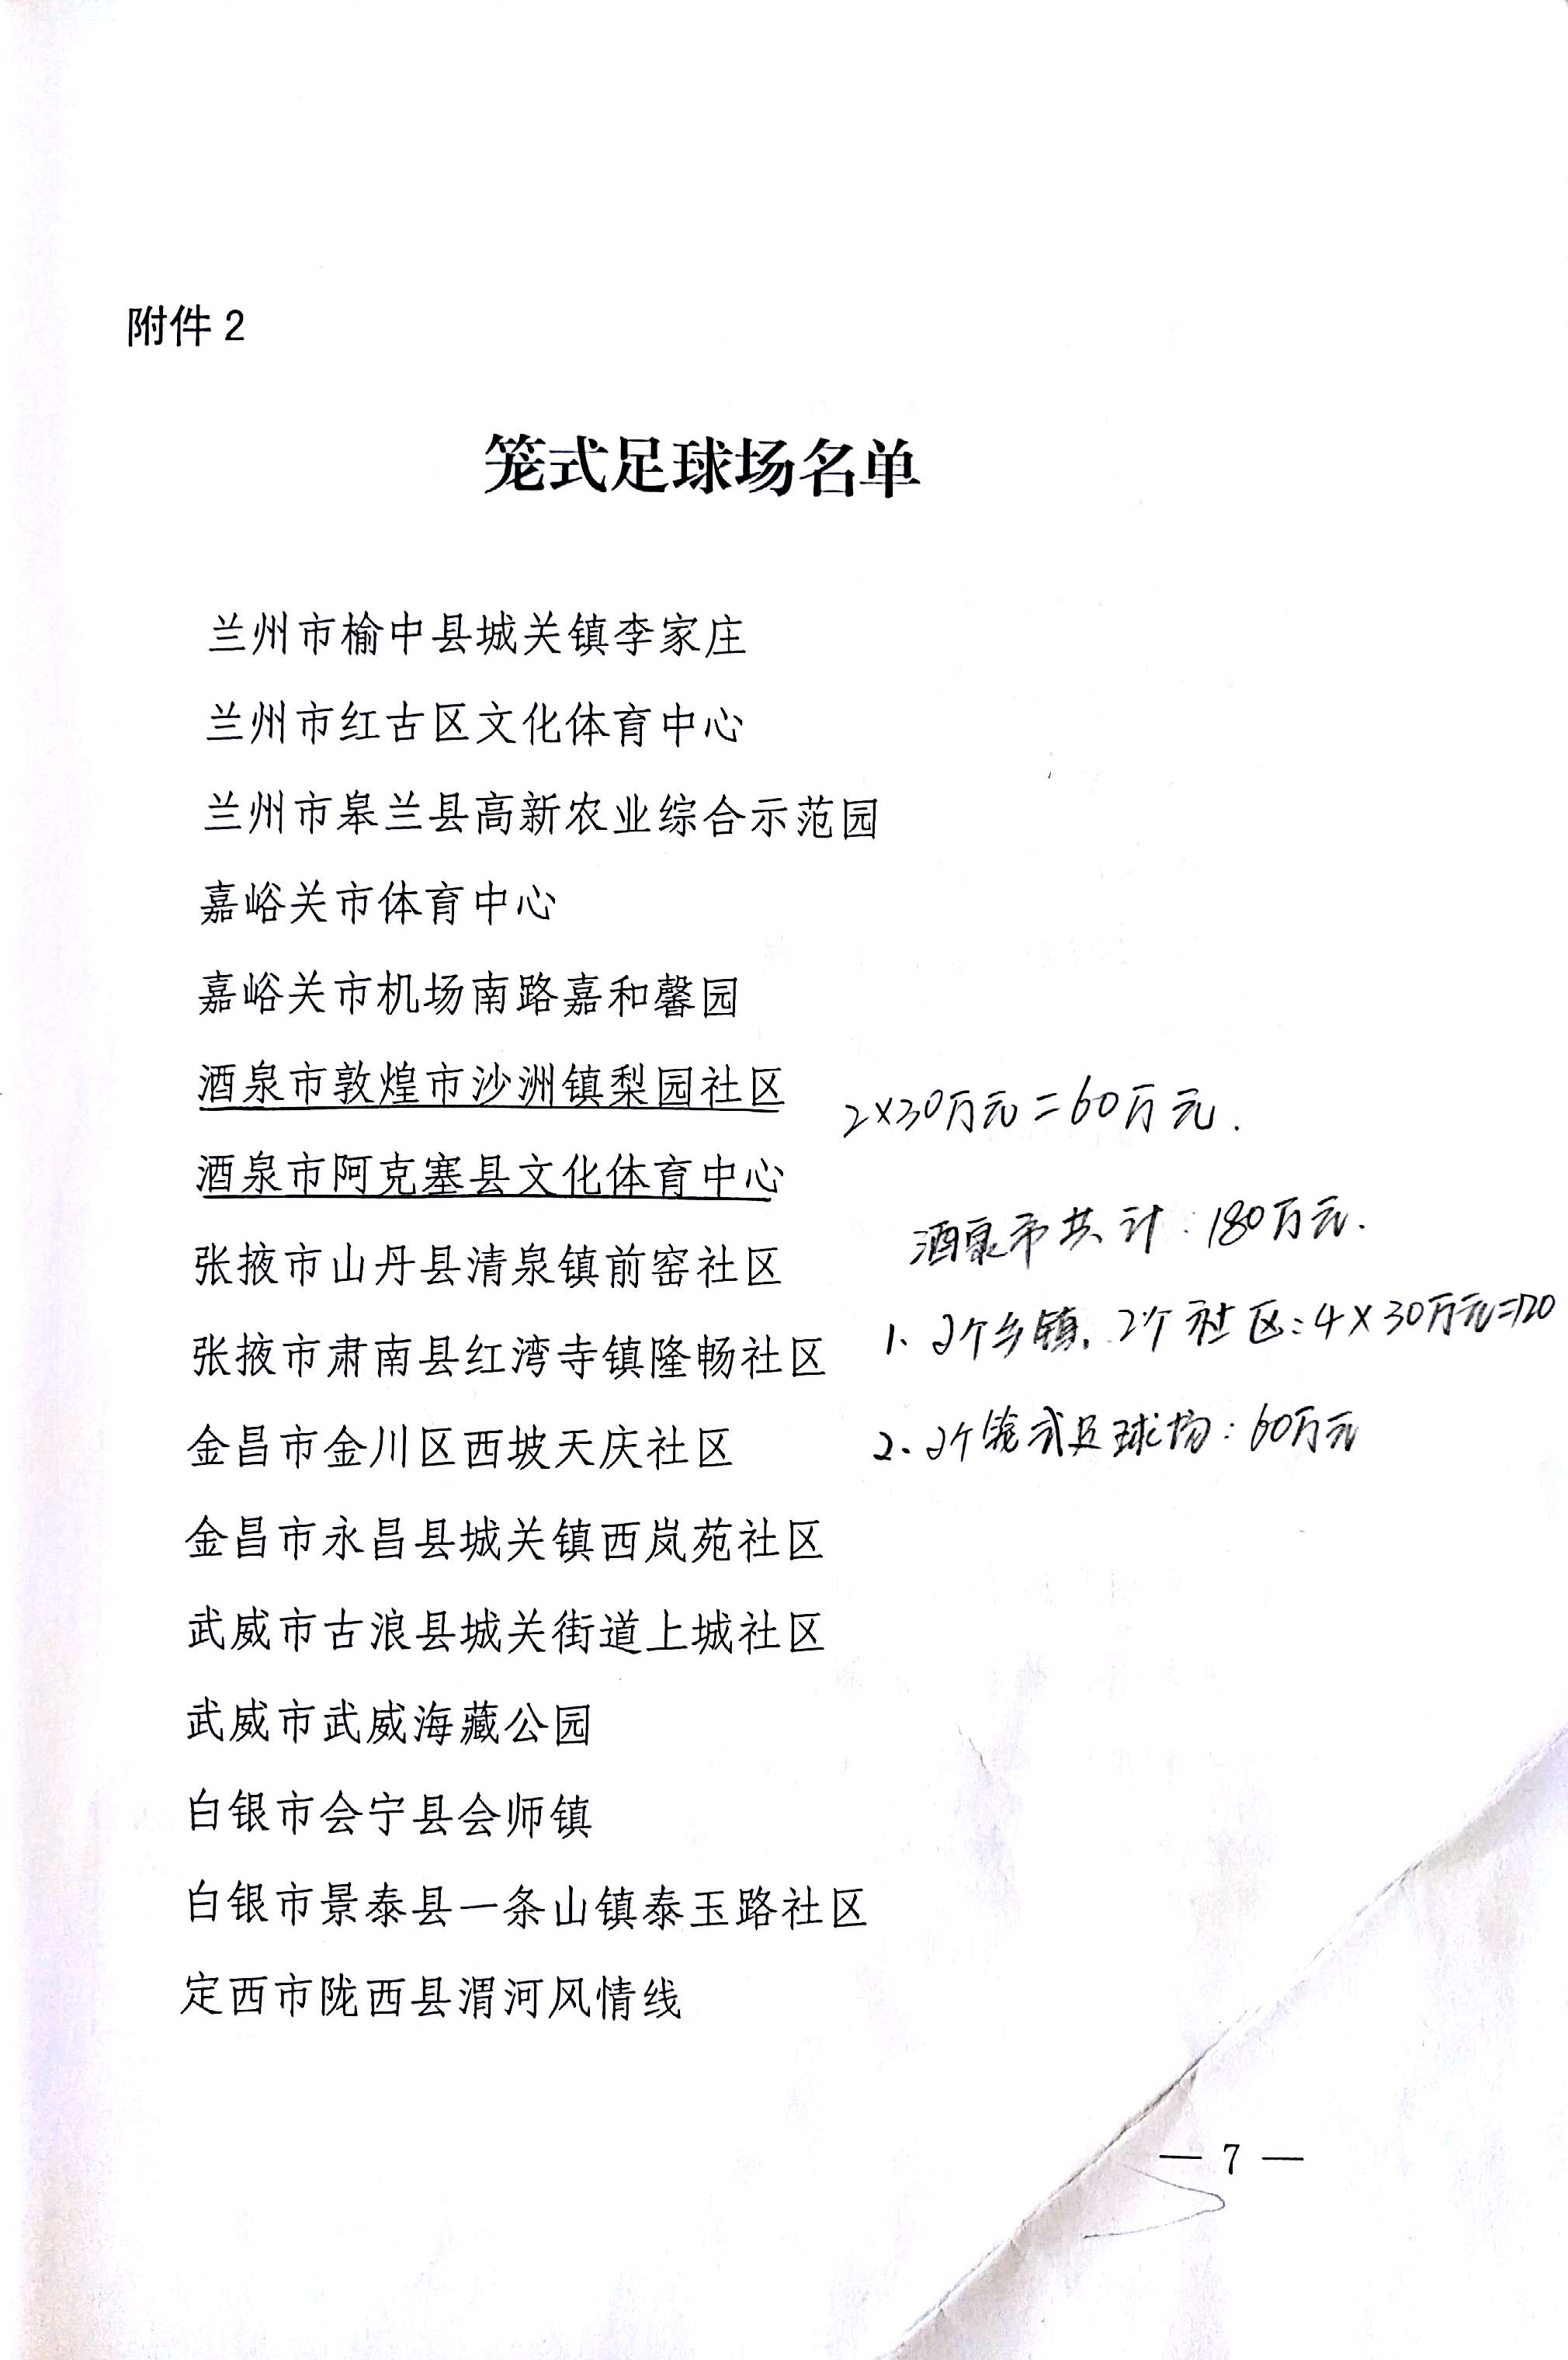 附件2
笼式足球场名单
兰州市榆中县城关镇李家庄
兰州市红古区文化体育中心
兰州市皋兰县高新农业综合示范园
嘉峪关市体育中心
嘉峪关市机场南路嘉和馨园
酒泉市敦煌市沙洲镇梨园社区
2×30万元=60万元.
酒泉市阿克塞县文化体育中心
酒泉市共计:180万元.
张掖市山丹县清泉镇前窑社区
1、2个乡镇,2个社区:4×30万元=120
张掖市肃南县红湾寺镇隆畅社区
2、2个笼式足球场:60万元
金昌市金川区西坡天庆社区
金昌市永昌县城关镇西岚苑社区
武威市古浪县城关街道上城社区
武威市武威海藏公园
白银市会宁县会师镇
白银市景泰县一条山镇泰玉路社区
定西市陇西县渭河风情线
— 7 —